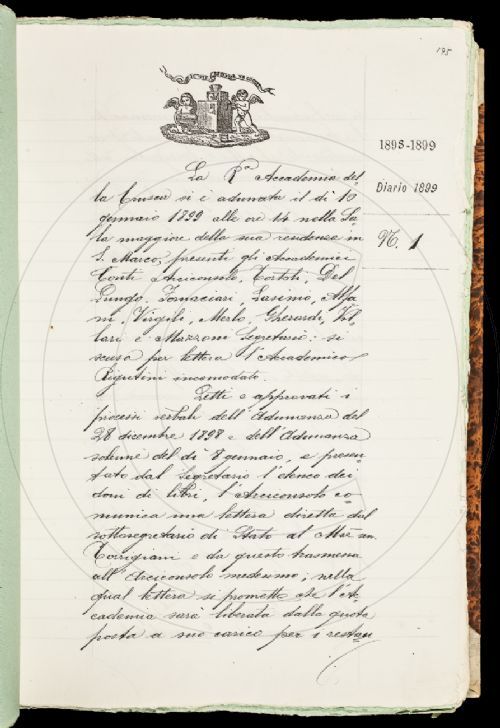 195
1898-1899
Diario 1899
N. 1
La R.ª Accademia del-
la Crusca si è adunata il dì 10
gennaio 1899 alle ore 14 nella Sa-
la maggiore della sua residenza in
S. Marco, presenti gli Accademici
Conti Arciconsolo, Tortoli, Del
Lungo, Tomaciari, Lasinio, Alfa-
ni, Virgili, Merlo, Gherardi, Vil-
lari e Mazzoni Segretario: si
scusa per lettera l'Accademico
Rigutini incomodato.
Letti e approvati i
processi verbali dell'Adunanza del
28 dicembre 1898 e dell'Adunanza
solenne del dì 8 gennaio, e presen-
tato dal Segretario l'elenco dei
doni di libri, l'Arciconsolo co-
munica una lettera diretta dal
sottosegretario di Stato al
Torrigiani e da questo trasmessa
all'Arciconsolo medesimo, nella
qual lettera si promette che l'Ac-
cademia sarà liberata dalla quota
posta a suo carico per i restau